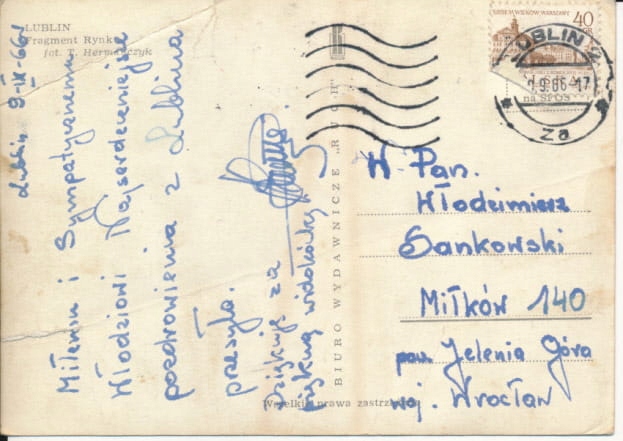 LUBLIN
Fragment Rynku
fot. T. Hermańczyk
Lublin 9-IX-66r
Miłemu i Sympatycznemu
Włodziowi Najserdeczniejsze
pozdrowienia z Lublina
przesyła.
Dziękuję za
piękną widokówkę.
BIURO WYDAWNICZE „RUCH”
Wszelkie prawa zastrzeżone
SIEDEM WIEKÓW WARSZAWY
40
LUBLIN 2
9.66-17
za
na SFOS
W Pan.
Włodzimierz
Sankowski
Miłków 140
pow. Jelenia Góra
woj. Wrocław